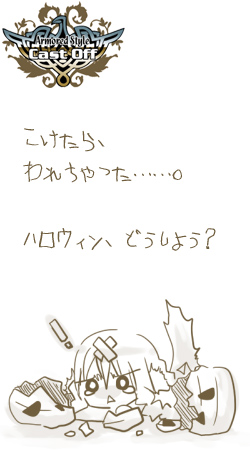 Armored Style
Cast Off
こけたら、
われちゃった……。
ハロウィン、どうしよう?